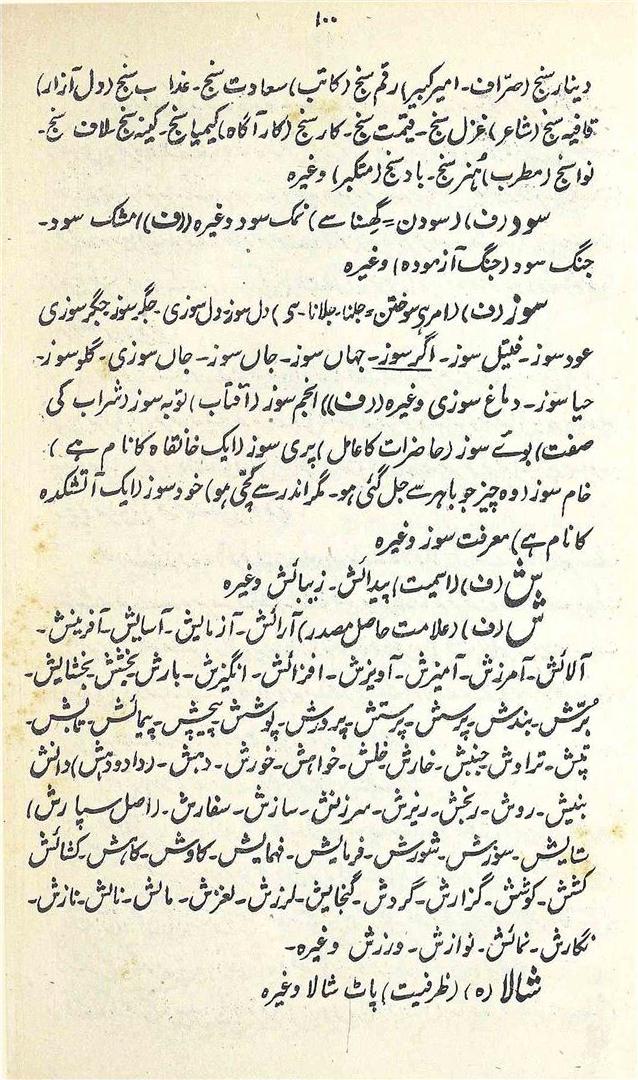 ۱۰۰
دینار سنج (صرّاف۔ امیر کبیر) رقم سنج (کاتب) سعادت سنج۔ عذاب سنج (دل آزار)
قافیہ سنج (شاعر) غزل سنج۔ قیمت سنج۔ کار سنج (کار آگاہ) کیمیا سنج۔ کینہ سنج۔ لاف سنج۔
نواسنج (مطرب) ہُنر سنج۔ باد سنج (متکبر) وغیرہ
سود (ف) (سودن = گھِسنا سے) نمک سود وغیرہ ((ف)) مشک سود۔
جنگ سود (جنگ آزمودہ) وغیرہ
سوز (ف) (امر ہی سوختن = جلنا۔ جلانا۔ سی) دل سوز۔ دل سوزی۔ جگر سوز جگر سوزی
عود سوز۔ فتیل سوز۔ اگر سوز۔ جہاں سوز۔ جاں سوز۔ جاں سوزی۔ گلو سوز۔
حیا سوز۔ دماغ سوزی وغیرہ ((ف)) انجم سوز (آفتاب) توبہ سوز (شراب کی
صفت) بوئے سوز (حاضرات کا عامل) پری سوز (ایک خانقاہ کا نام ہے)
خام سوز (وہ چیز جو باہر سے جل گئی ہو۔ مگر اندر سے کچّی ہو) خود سوز (ایک آتشکدہ
کا نام ہے) معرفت سوز وغیرہ
ش (ف) (اسمیت) پیدائش۔ زیبائش وغیرہ
ش (ف) (علامت حاصل مصدر) آرائش۔ آزمایش۔ آسایش۔ آفرینش۔
آلائش۔ آمرزش۔ آمیزش۔ آویزش۔ افزائش۔ انگیزش۔ بارش۔ بخشش بخشایش۔
بُرّش۔ بندش۔ پرسش۔ پرستش۔ پرورش۔ پوشش۔ پیچش۔ پیمائش۔ تابش۔
تپش۔ تراوش۔ جنبش۔ خارش۔ خلش۔ خواہش۔ خورش۔ دہش۔ (دادودہش) دانش
بینش۔ روش۔ رنجش۔ ریزش۔ سرزنش۔ سازش۔ سفارش۔ (اصل سپارش)
ستایش۔ سوزش۔ شورش۔ فرمایش۔ فہمایش۔ کاوش۔ کاہش۔ کشائش
کشش۔ کوشش۔ گزارش۔ گردش۔ گنجایش۔ لرزش۔ لغزش۔ مالش۔ نالش۔ نازش۔
نگارش۔ نمائش۔ نوازش۔ ورزش وغیرہ۔
شالا (ہ) (ظرفیت) پاٹ شالا وغیرہ